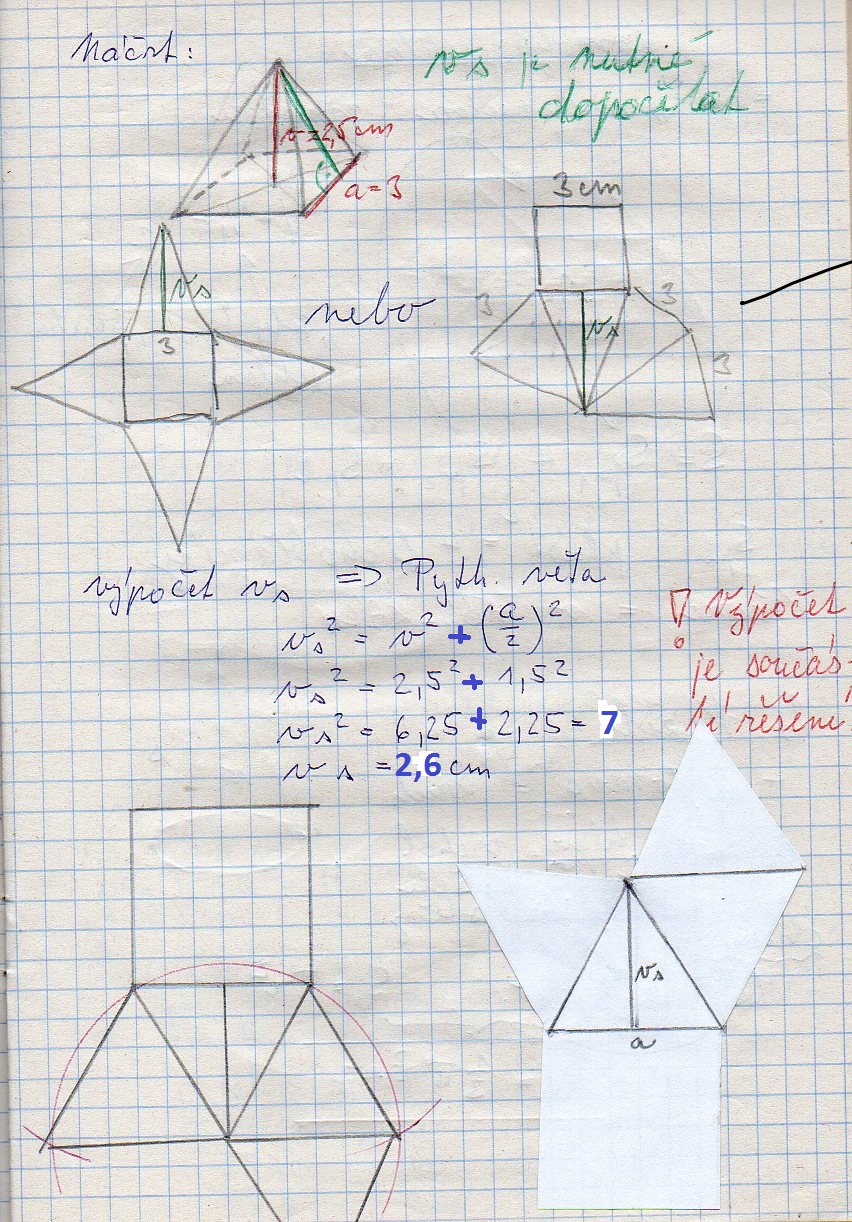 Náčrt:
vs je nutné
dopočítat
v=2,5cm
a=3
3cm
vs
3
nebo
3
3
vs
3
výpočet vs => Pyth. věta
vs² = v² + (a/2)²
vs² = 2,5² + 1,5²
vs² = 6,25 + 2,25 = 7
vs = 2,6 cm
! Výpočet
je součás-
tí řěšení
vs
a